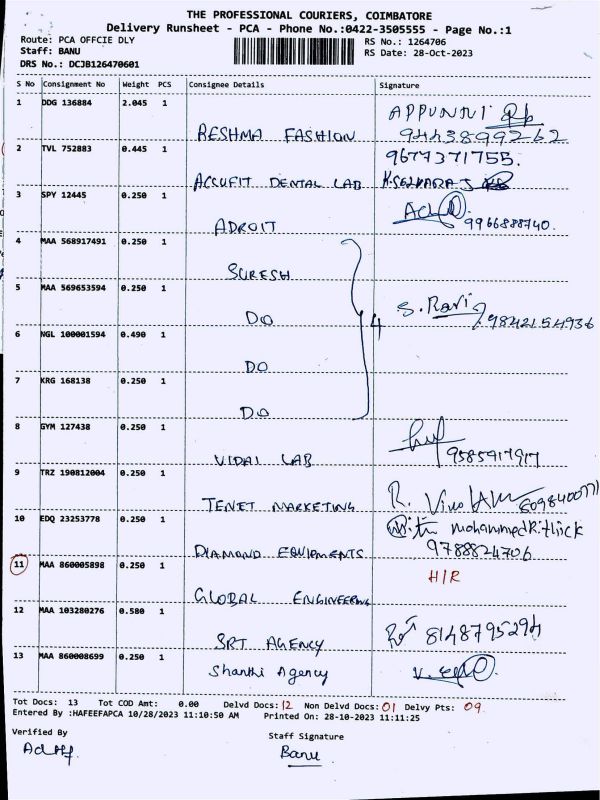 THE PROFESSIONAL COURIERS, COIMBATORE
Delivery Runsheet - PCA - Phone No.:0422-3505555 - Page No.:1
Route: PCA OFFCIE DLY
RS No.: 1264706
Staff: BANU
RS Date: 28-Oct-2023
DRS No.: DCJB126470601
S No Consignment No Weight PCS Consignee Details Signature
1 DDG 136884 2.045 1 APPUNNI
RESHMA FASHION 9443899262
2 TVL 752883 0.445 1 9677371755.
ACCUFIT DENTAL LAB
3 SPY 12445 0.250 1
ADROIT 9966888740.
4 MAA 568917491 0.250 1
SURESH
5 MAA 569653594 0.250 1 S. Ravi
DO 4 9842154936
6 NGL 100001594 0.490 1
DO
7 KRG 168138 0.250 1
DO
8 GYM 127438 0.250 1
VIDAI LAB 9585917917
9 TRZ 190812004 0.250 1
TENET MARKETING R.
10 EDQ 23253778 0.250 1 MohammedRithick
DIAMOND EQUIPMENTS 9788824706
11 MAA 860005898 0.250 1 H/R
GLOBAL ENGINEERING
12 MAA 103280276 0.580 1
SRT AGENCY 8148795294
13 MAA 860008699 0.250 1
Shanthi Agency
Tot Docs: 13 Tot COD Amt: 0.00 Delvd Docs: 12 Non Delvd Docs: 01 Delvy Pts: 09.
Entered By :HAFEEFAPCA 10/28/2023 11:10:50 AM Printed On: 28-10-2023 11:11:25
Verified By Staff Signature
Banu